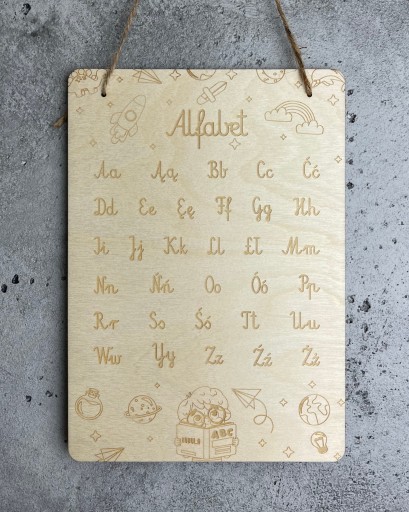 Alfabet
Aa Ąą Bb Cc Ćć
Dd Ee Ęę Ff Gg Hh
Ii Jj Kk Ll Łł Mm
Nn Ńń Oo Óó Pp
Rr Ss Śś Tt Uu
Ww Yy Zz Źź Żż
ABC